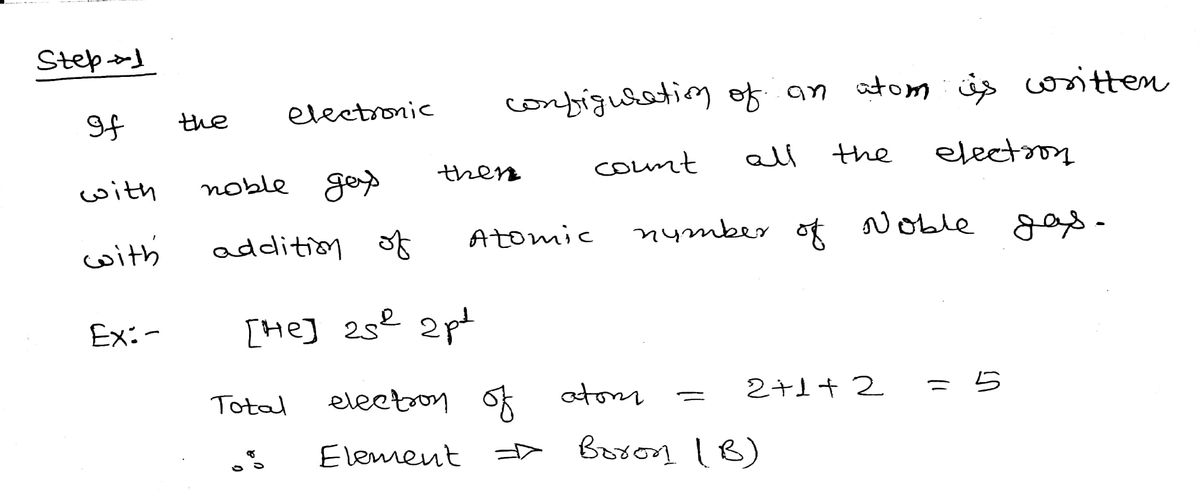 Step → 1
If the electronic configuration of an atom is written
with noble gas then count all the electron
with addition of Atomic number of Noble gas.
Ex:- [He] 2s² 2p¹
Total electron of atom = 2+1+2 = 5
∴ Element ⇒ Boron (B)